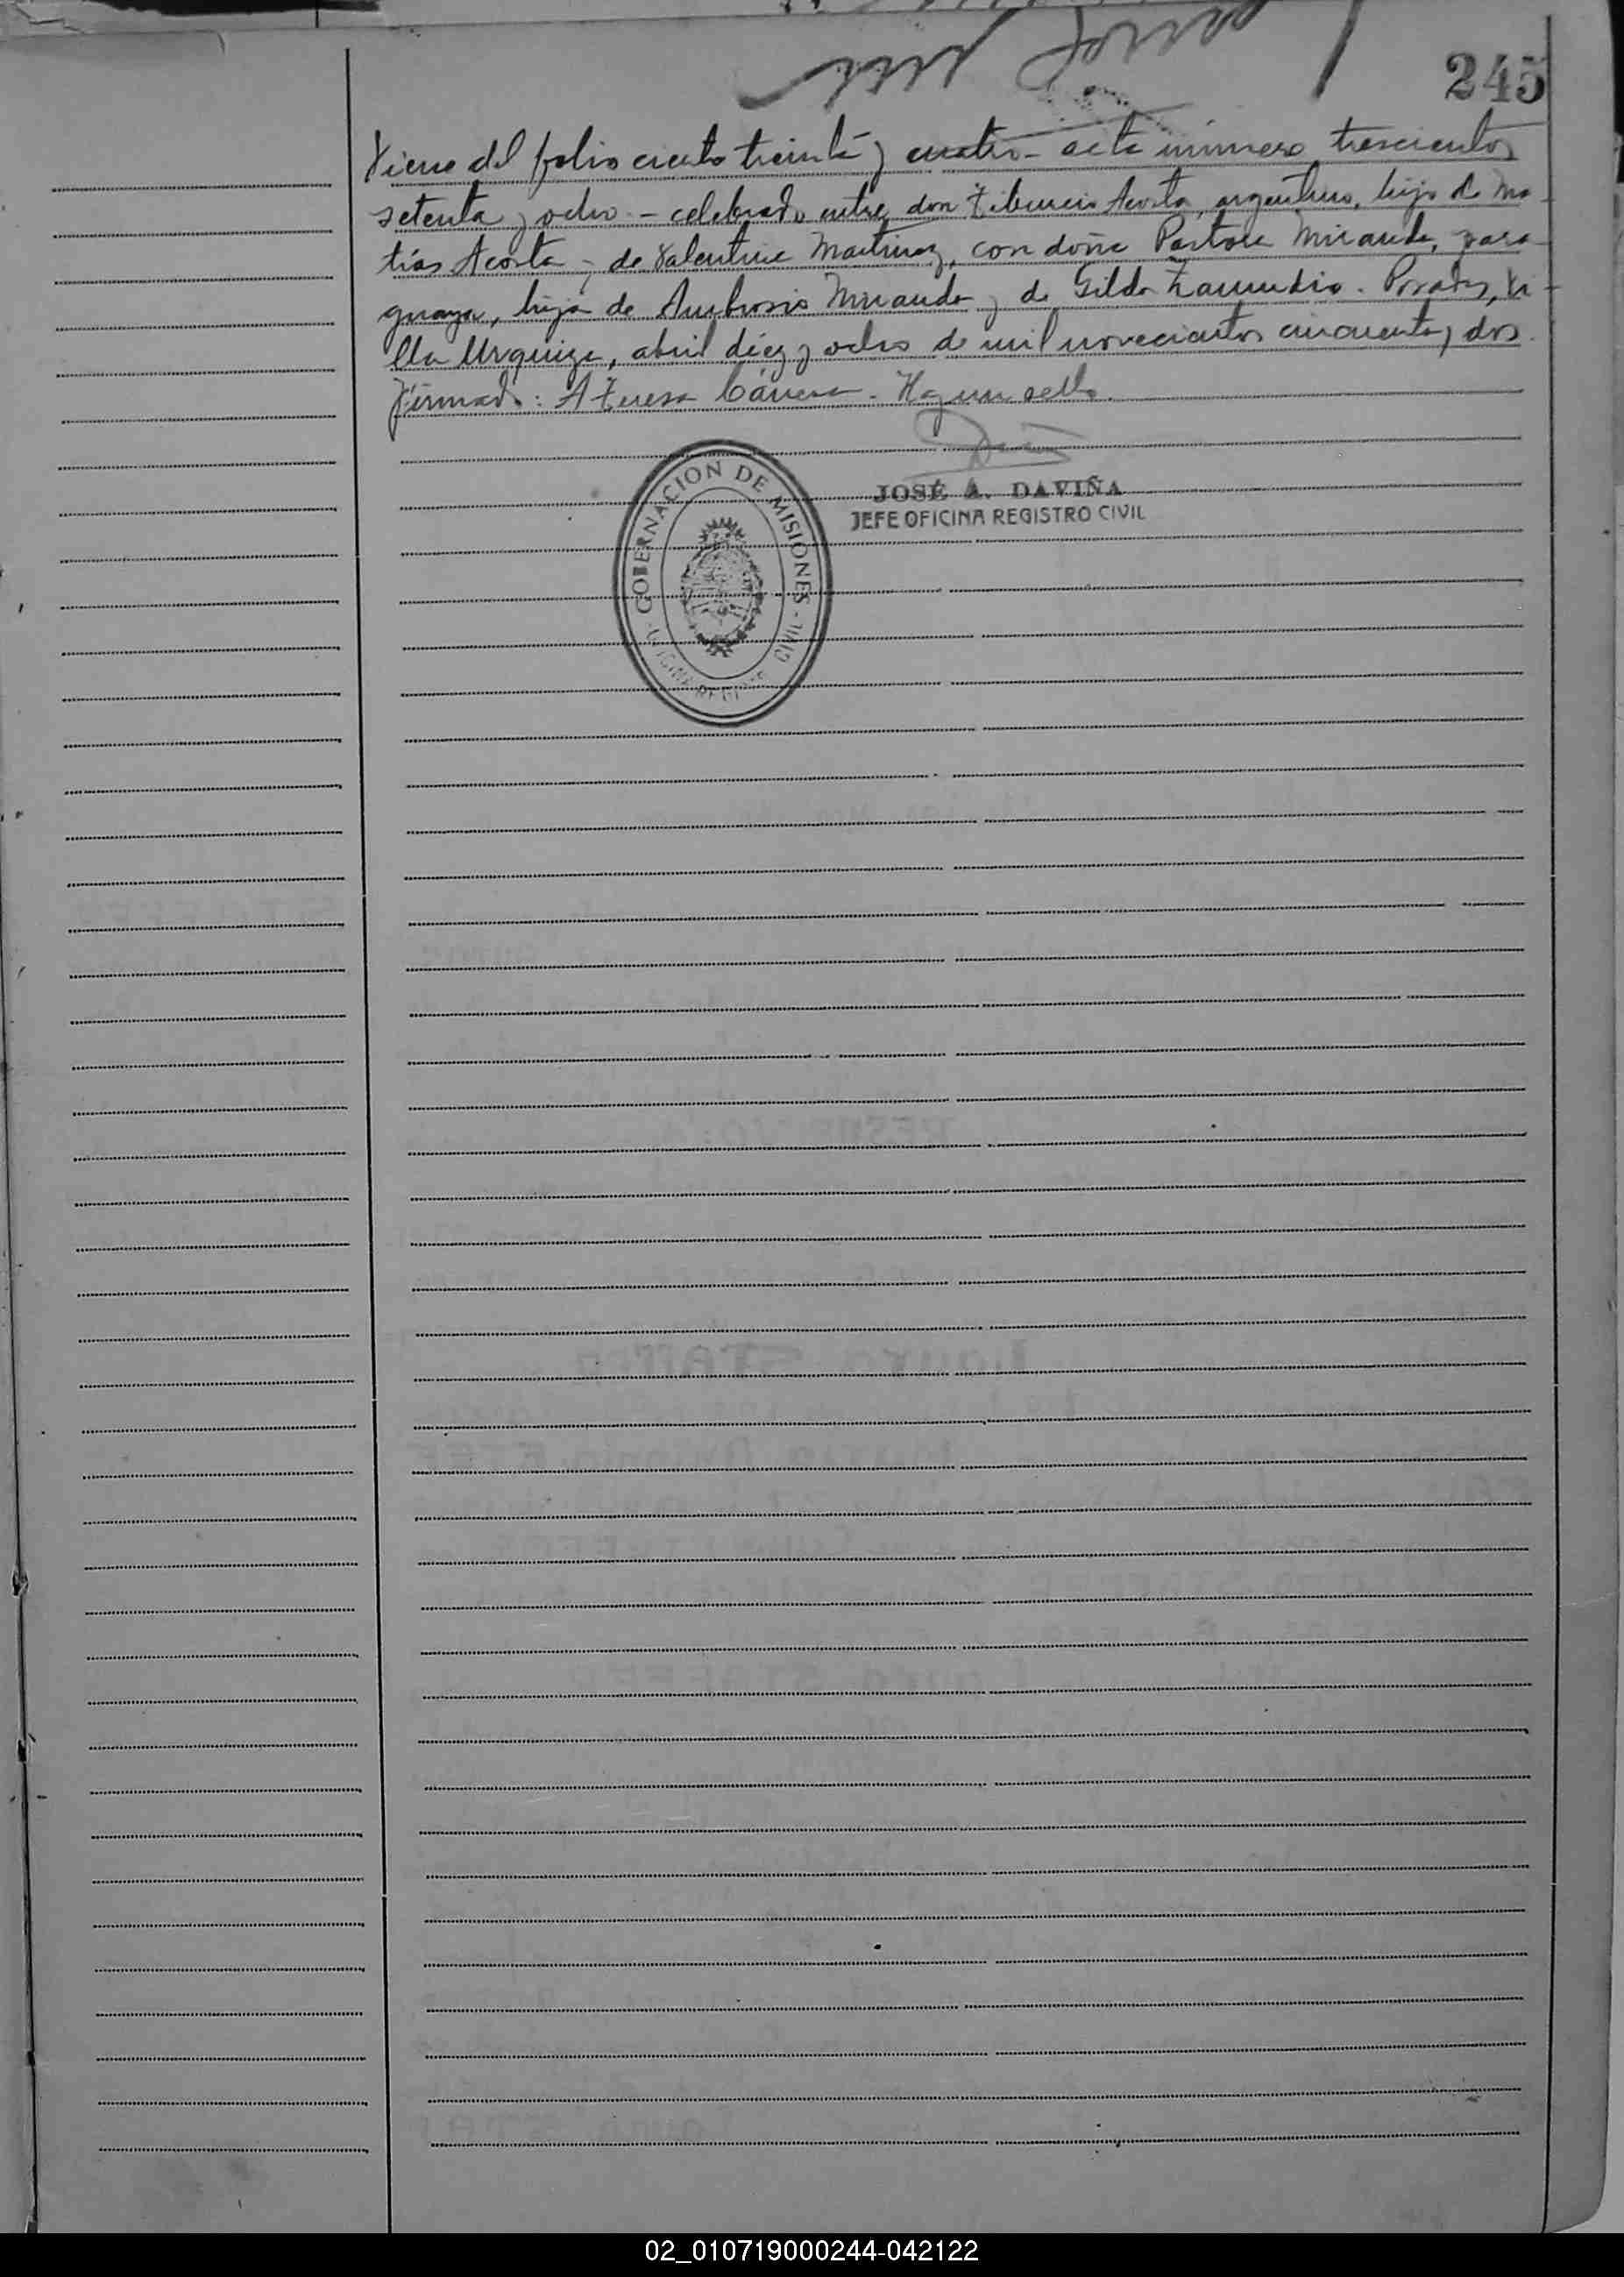 245
Viene del folio ciento treinta y cuatro - acta número trescientos
setenta y ocho - celebrado entre don Tiburcio Acosta, argentino, hijo de Ma
tías Acosta y de Valentina Martinez, con doña Pastora Miranda, para
guaya, hija de Ambrosio Miranda y de Gilda Zamudio. Posadas, Vi
lla Urquiza, abril diez y ocho de mil novecientos cincuenta y dos.
Firmado: A. Hay un sello.
JOSÉ A. DAVIÑA
JEFE OFICINA REGISTRO CIVIL
GOBERNACION DE MISIONES
OFICINA REGISTRO CIVIL
02_010719000244-042122